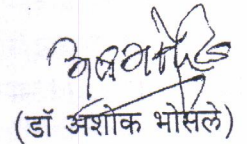 (डॉ अशोक भोसले)